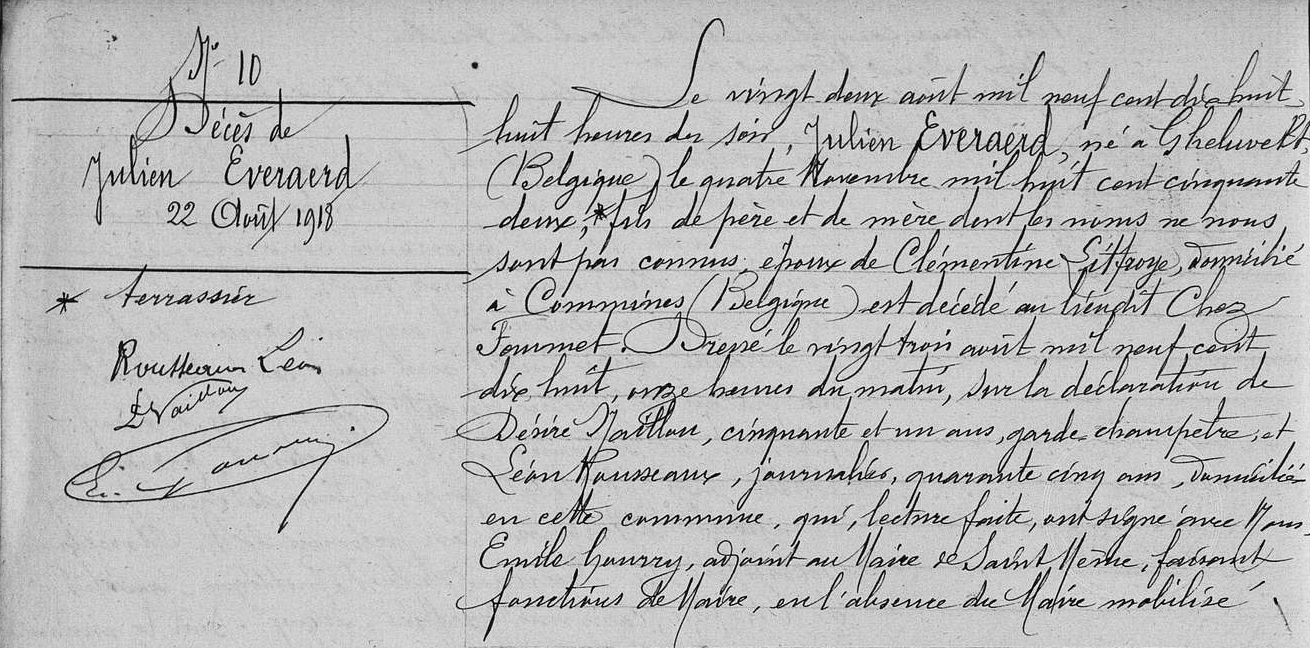 N° 10
Décès de
Julien Everaerd
22 Août 1918
* terrassier
Rousseaux Léon
Le vingt deux août mil neuf cent dix huit,
huit heures du soir, Julien Everaerd, né à Gheluvelt,
(Belgique) le quatre Novembre mil huit cent cinquante
deux, * fils de père et de mère dont les noms ne nous
sont pas connus, époux de Clémentine domicilié
à Commines (Belgique) est décédé au lieudit Chez
Dressé le vingt trois août mil neuf cent
dix huit, onze heures du matin, sur la déclaration de
Désiré cinquante et un ans, garde-champêtre, et
Léon Rousseaux, journalier, quarante cinq ans, domiciliés
en cette commune, qui, lecture faite, ont signé avec Nous,
Emile Gourry, adjoint au Maire de Saint Même, faisant
fonctions de Maire, en l'absence du Maire mobilisé